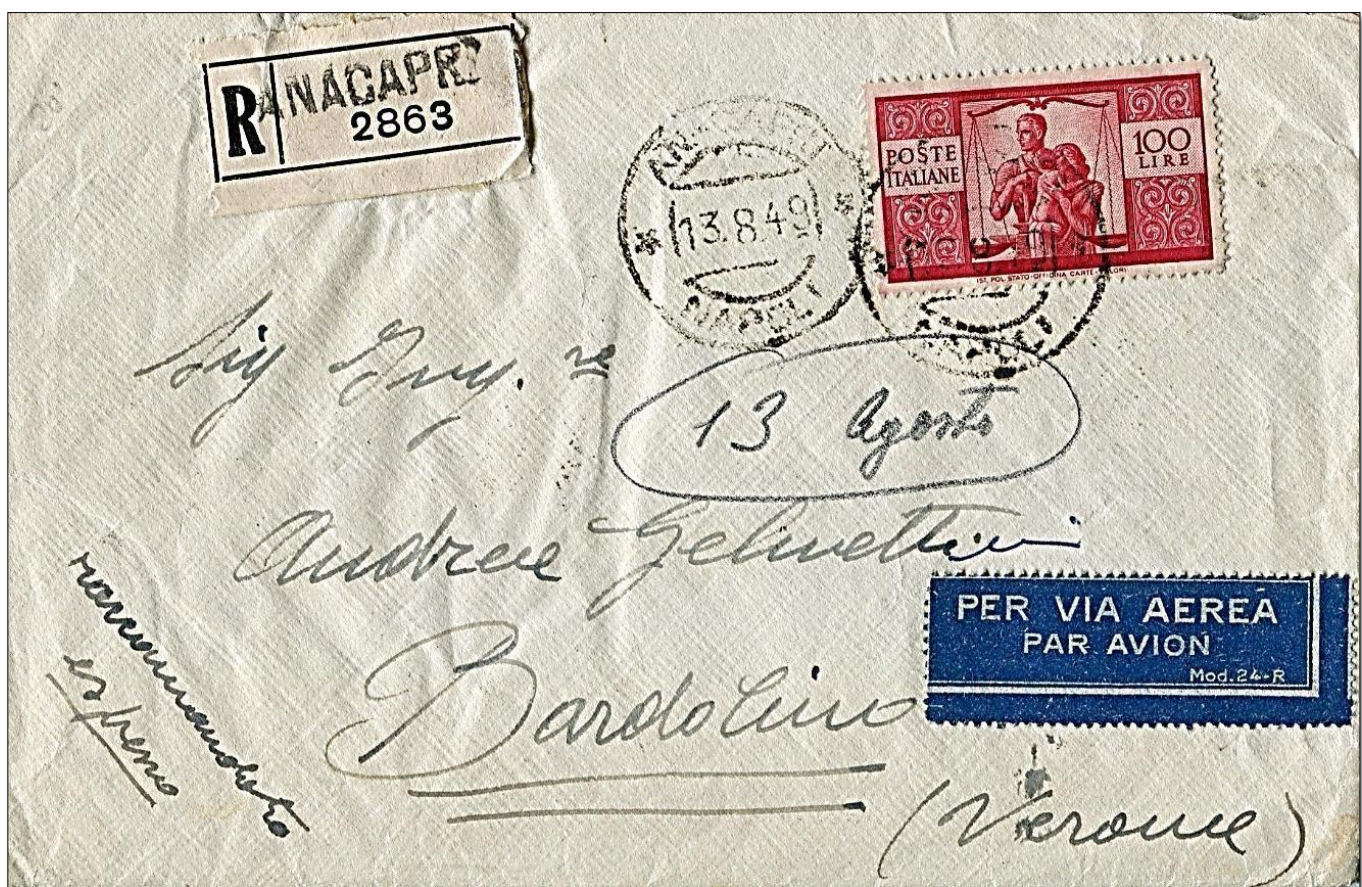 R ANACAPRI
2863
ANACAPRI
13.8.49
NAPOLI
POSTE
ITALIANE
100
LIRE
IST. POL. STATO-OFFICINA CARTE-VALORI
Sig Ing.re
13 Agosto
Andrea Gelmettini
PER VIA AEREA
PAR AVION
Mod.24-R
Bardolino
(Verona)
raccomandato
espresso